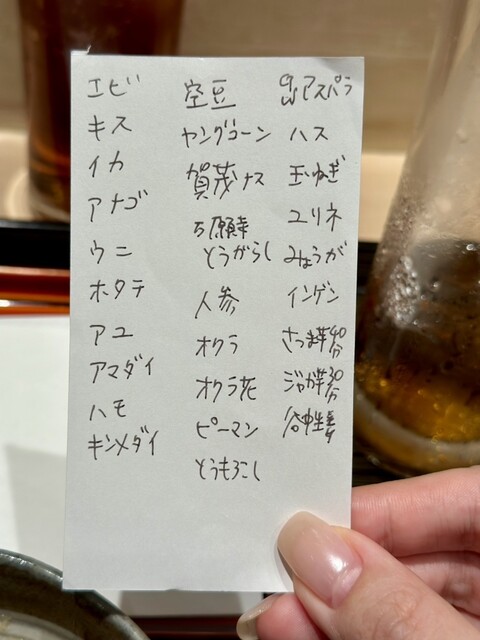 エビ
キス
イカ
アナゴ
ウニ
ホタテ
アユ
アマダイ
ハモ
キンメダイ
空豆
ヤングコーン
賀茂ナス
万願寺
とうがらし
人参
オクラ
オクラ花
ピーマン
とうもろこし
アスパラ
ハス
玉ねぎ
ユリネ
みょうが
インゲン
さつま芋40分
ジャガ芋30分
谷中生姜